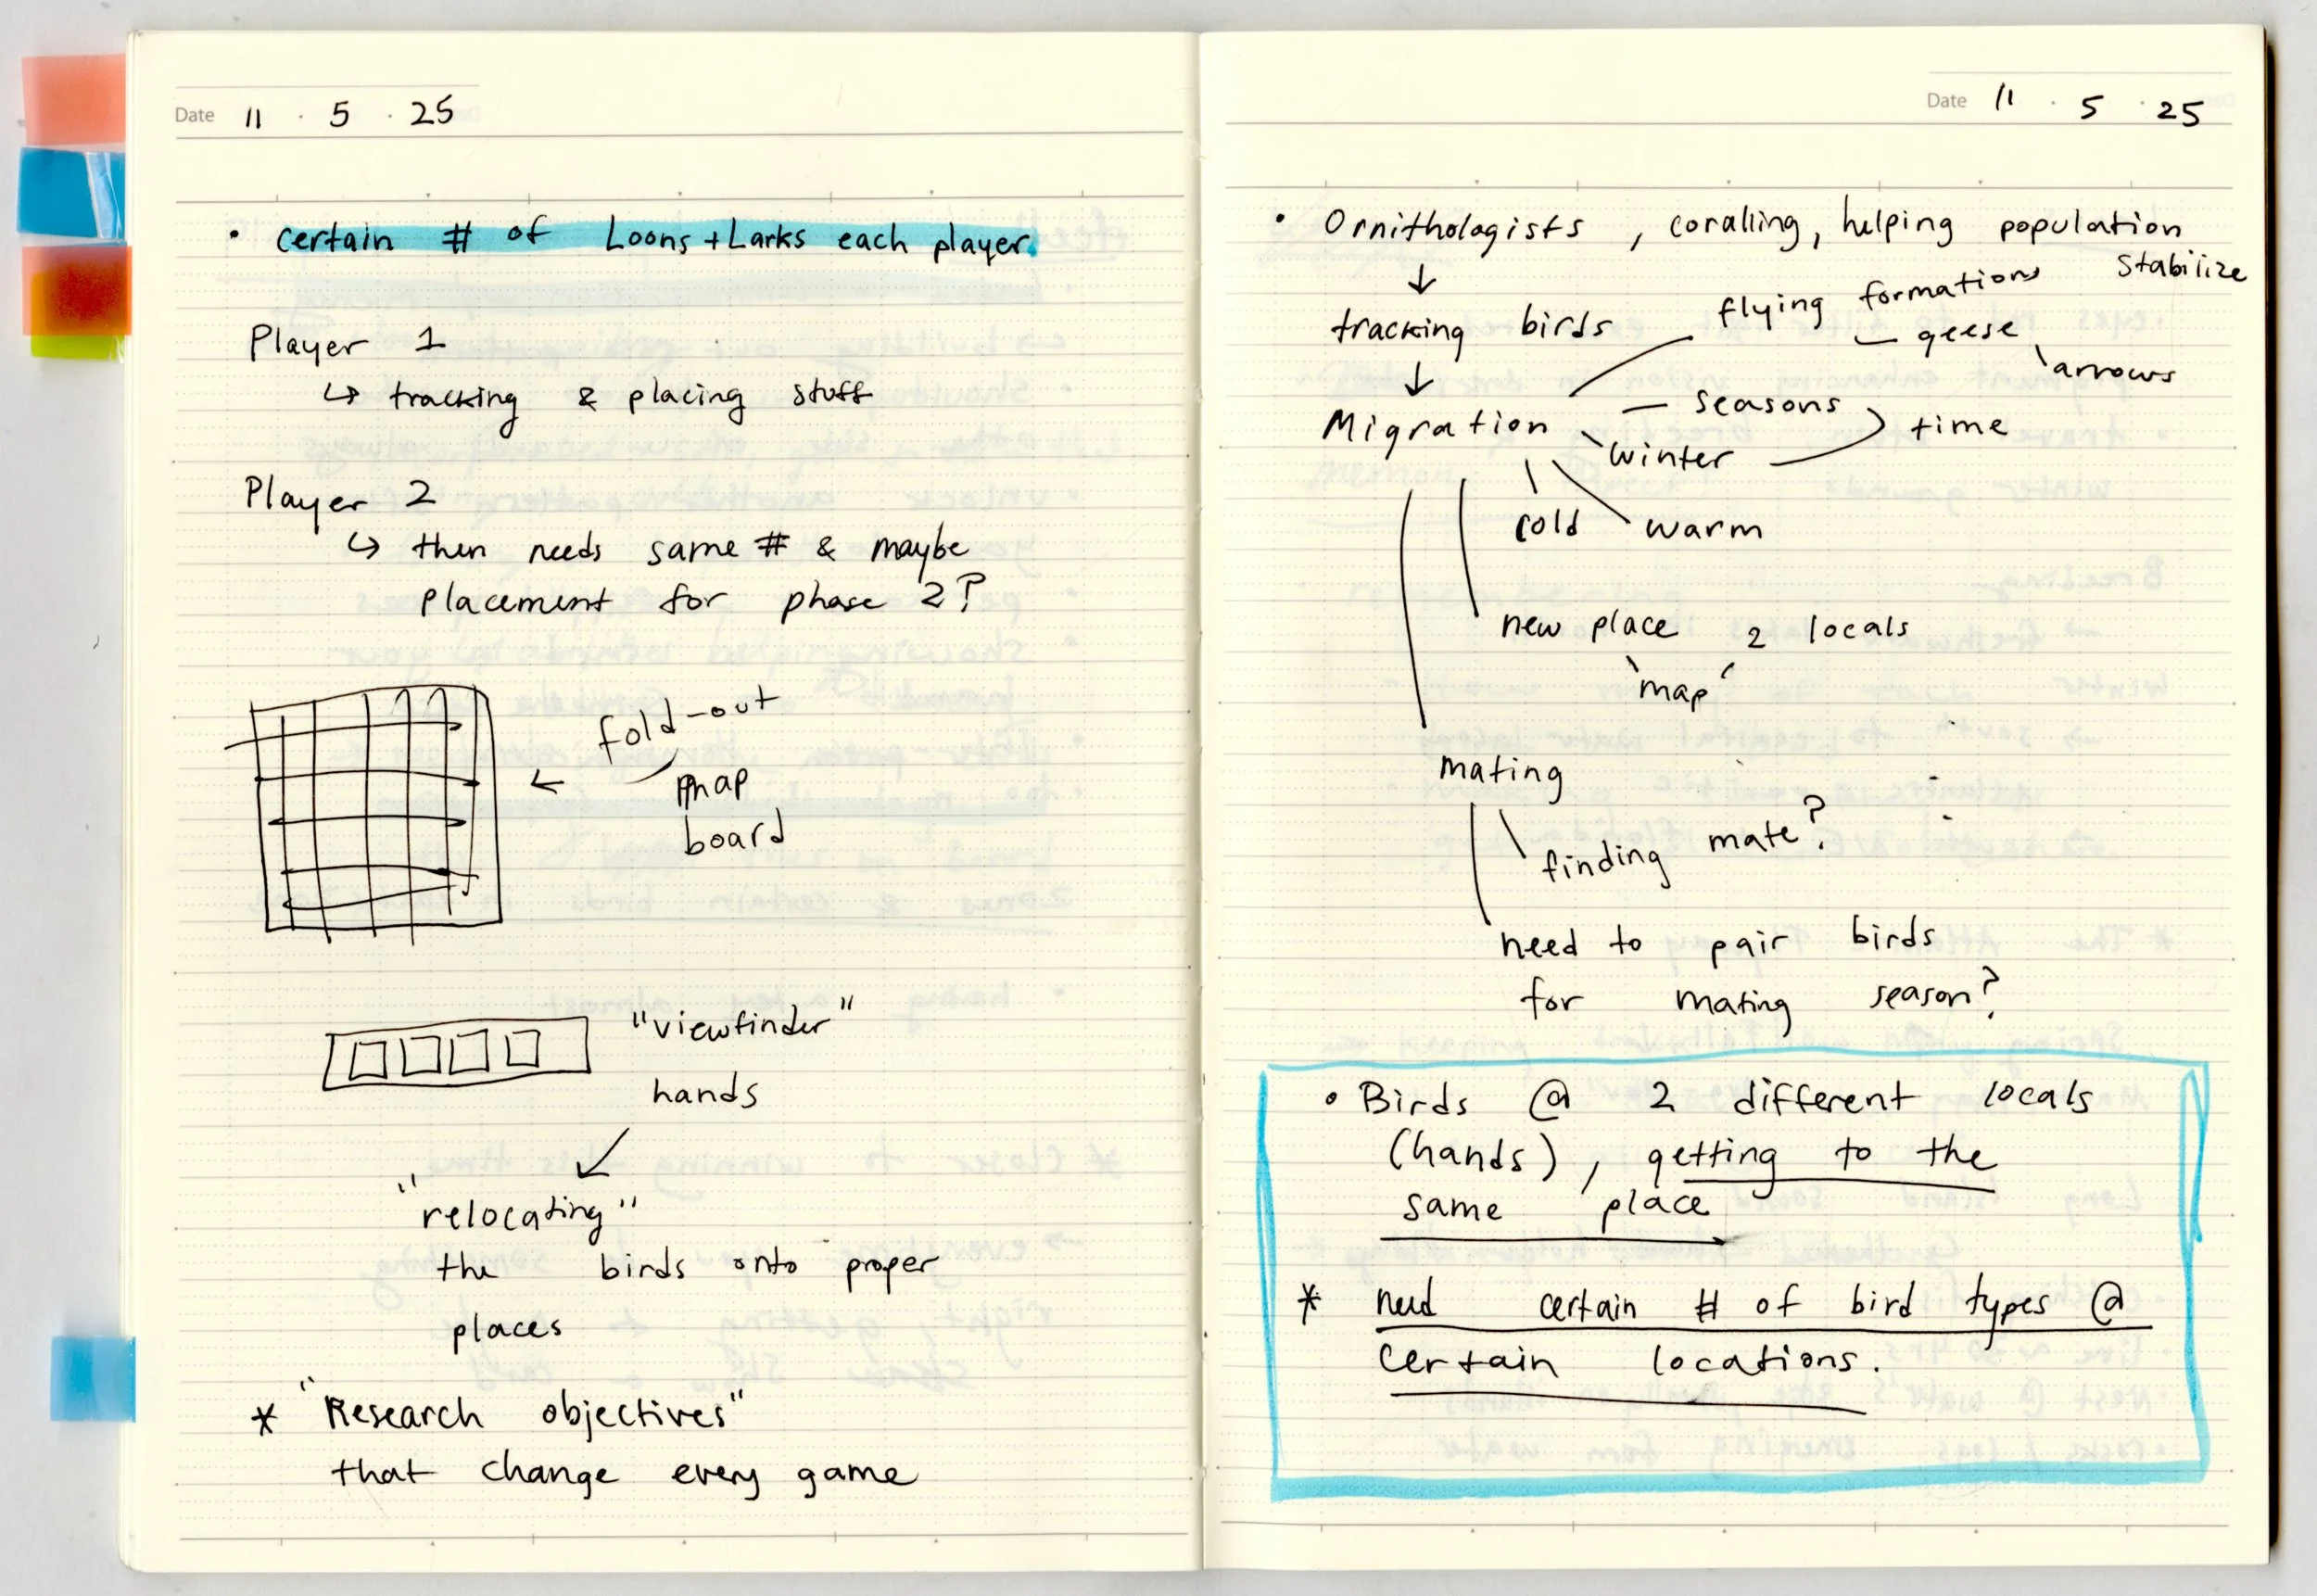 Date 11 · 5 · 25
• certain # of Loons + Larks each player.
Player 1
↳ tracking & placing stuff
Player 2
↳ then needs same # & maybe
placement for phase 2?
fold-out
← map
board
"viewfinder"
hands
"relocating"
the birds onto proper
places
* "Research objectives"
that change every game
Date 11 · 5 · 25
• Ornithologists, coralling, helping population
stabilize
↓
tracking birds
flying formations
geese
arrows
↓
Migration
seasons
winter
time
cold
warm
new place 2 locals
map
mating
finding mate?
need to pair birds
for mating season?
• Birds @ 2 different locals
(hands), getting to the
same place
* need certain # of bird types @
certain locations.